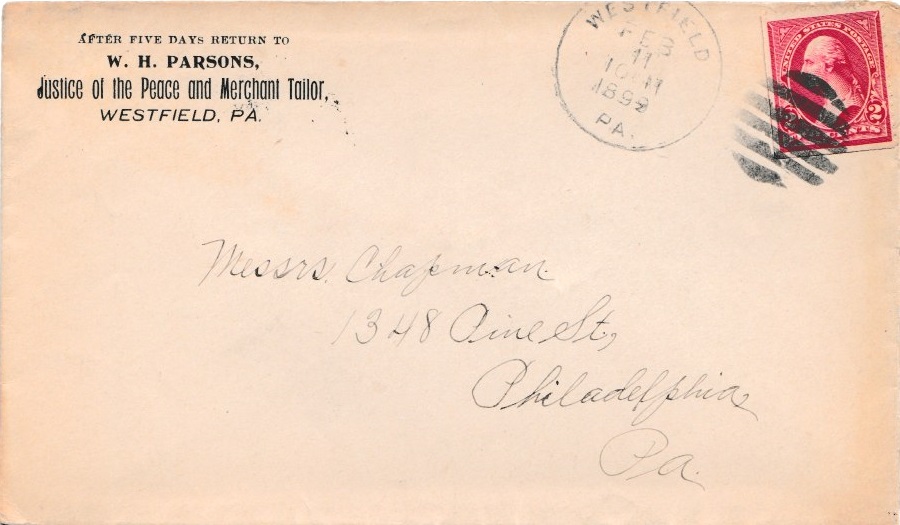 AFTER FIVE DAYS RETURN TO
W. H. PARSONS,
Justice of the Peace and Merchant Tailor,
WESTFIELD, PA.
WESTFIELD
FEB
11
10 M
PA.
UNITED STATES POSTAGE
2 CENTS 2
Messrs. Chapman
1348 Pine St,
Philadelphia,
Pa.